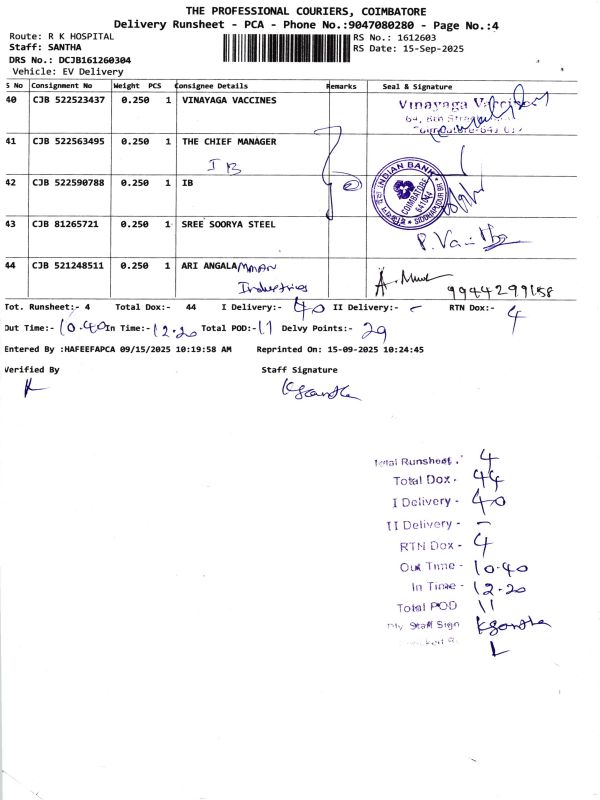 THE PROFESSIONAL COURIERS, COIMBATORE
Delivery Runsheet - PCA - Phone No.:9047080280 - Page No.:4
Route: R K HOSPITAL RS No.: 1612603
Staff: SANTHA RS Date: 15-Sep-2025
DRS No.: DCJB161260304
Vehicle: EV Delivery
S No Consignment No Weight PCS Consignee Details Remarks Seal & Signature
40 CJB 522523437 0.250 1 VINAYAGA VACCINES Vinayaga
41 CJB 522563495 0.250 1 THE CHIEF MANAGER
I B
42 CJB 522590788 0.250 1 IB 2 INDIAN BANK COIMBATORE
43 CJB 81265721 0.250 1 SREE SOORYA STEEL
44 CJB 521248511 0.250 1 ARI ANGALAMMAN
Industries 9944299158
Tot. Runsheet:- 4 Total Dox:- 44 I Delivery:- 40 II Delivery:- - RTN Dox:- 4
Out Time:- 10.40 In Time:- 12.20 Total POD:- 11 Delvy Points:- 29
Entered By :HAFEEFAPCA 09/15/2025 10:19:58 AM Reprinted On: 15-09-2025 10:24:45
Verified By Staff Signature
Ksantha
Total Runsheet - 4
Total Dox - 44
I Delivery - 40
II Delivery - -
RTN Dox - 4
Out Time - 10.40
In Time - 12.20
Total POD 11
Dly Staff Sign Ksantha